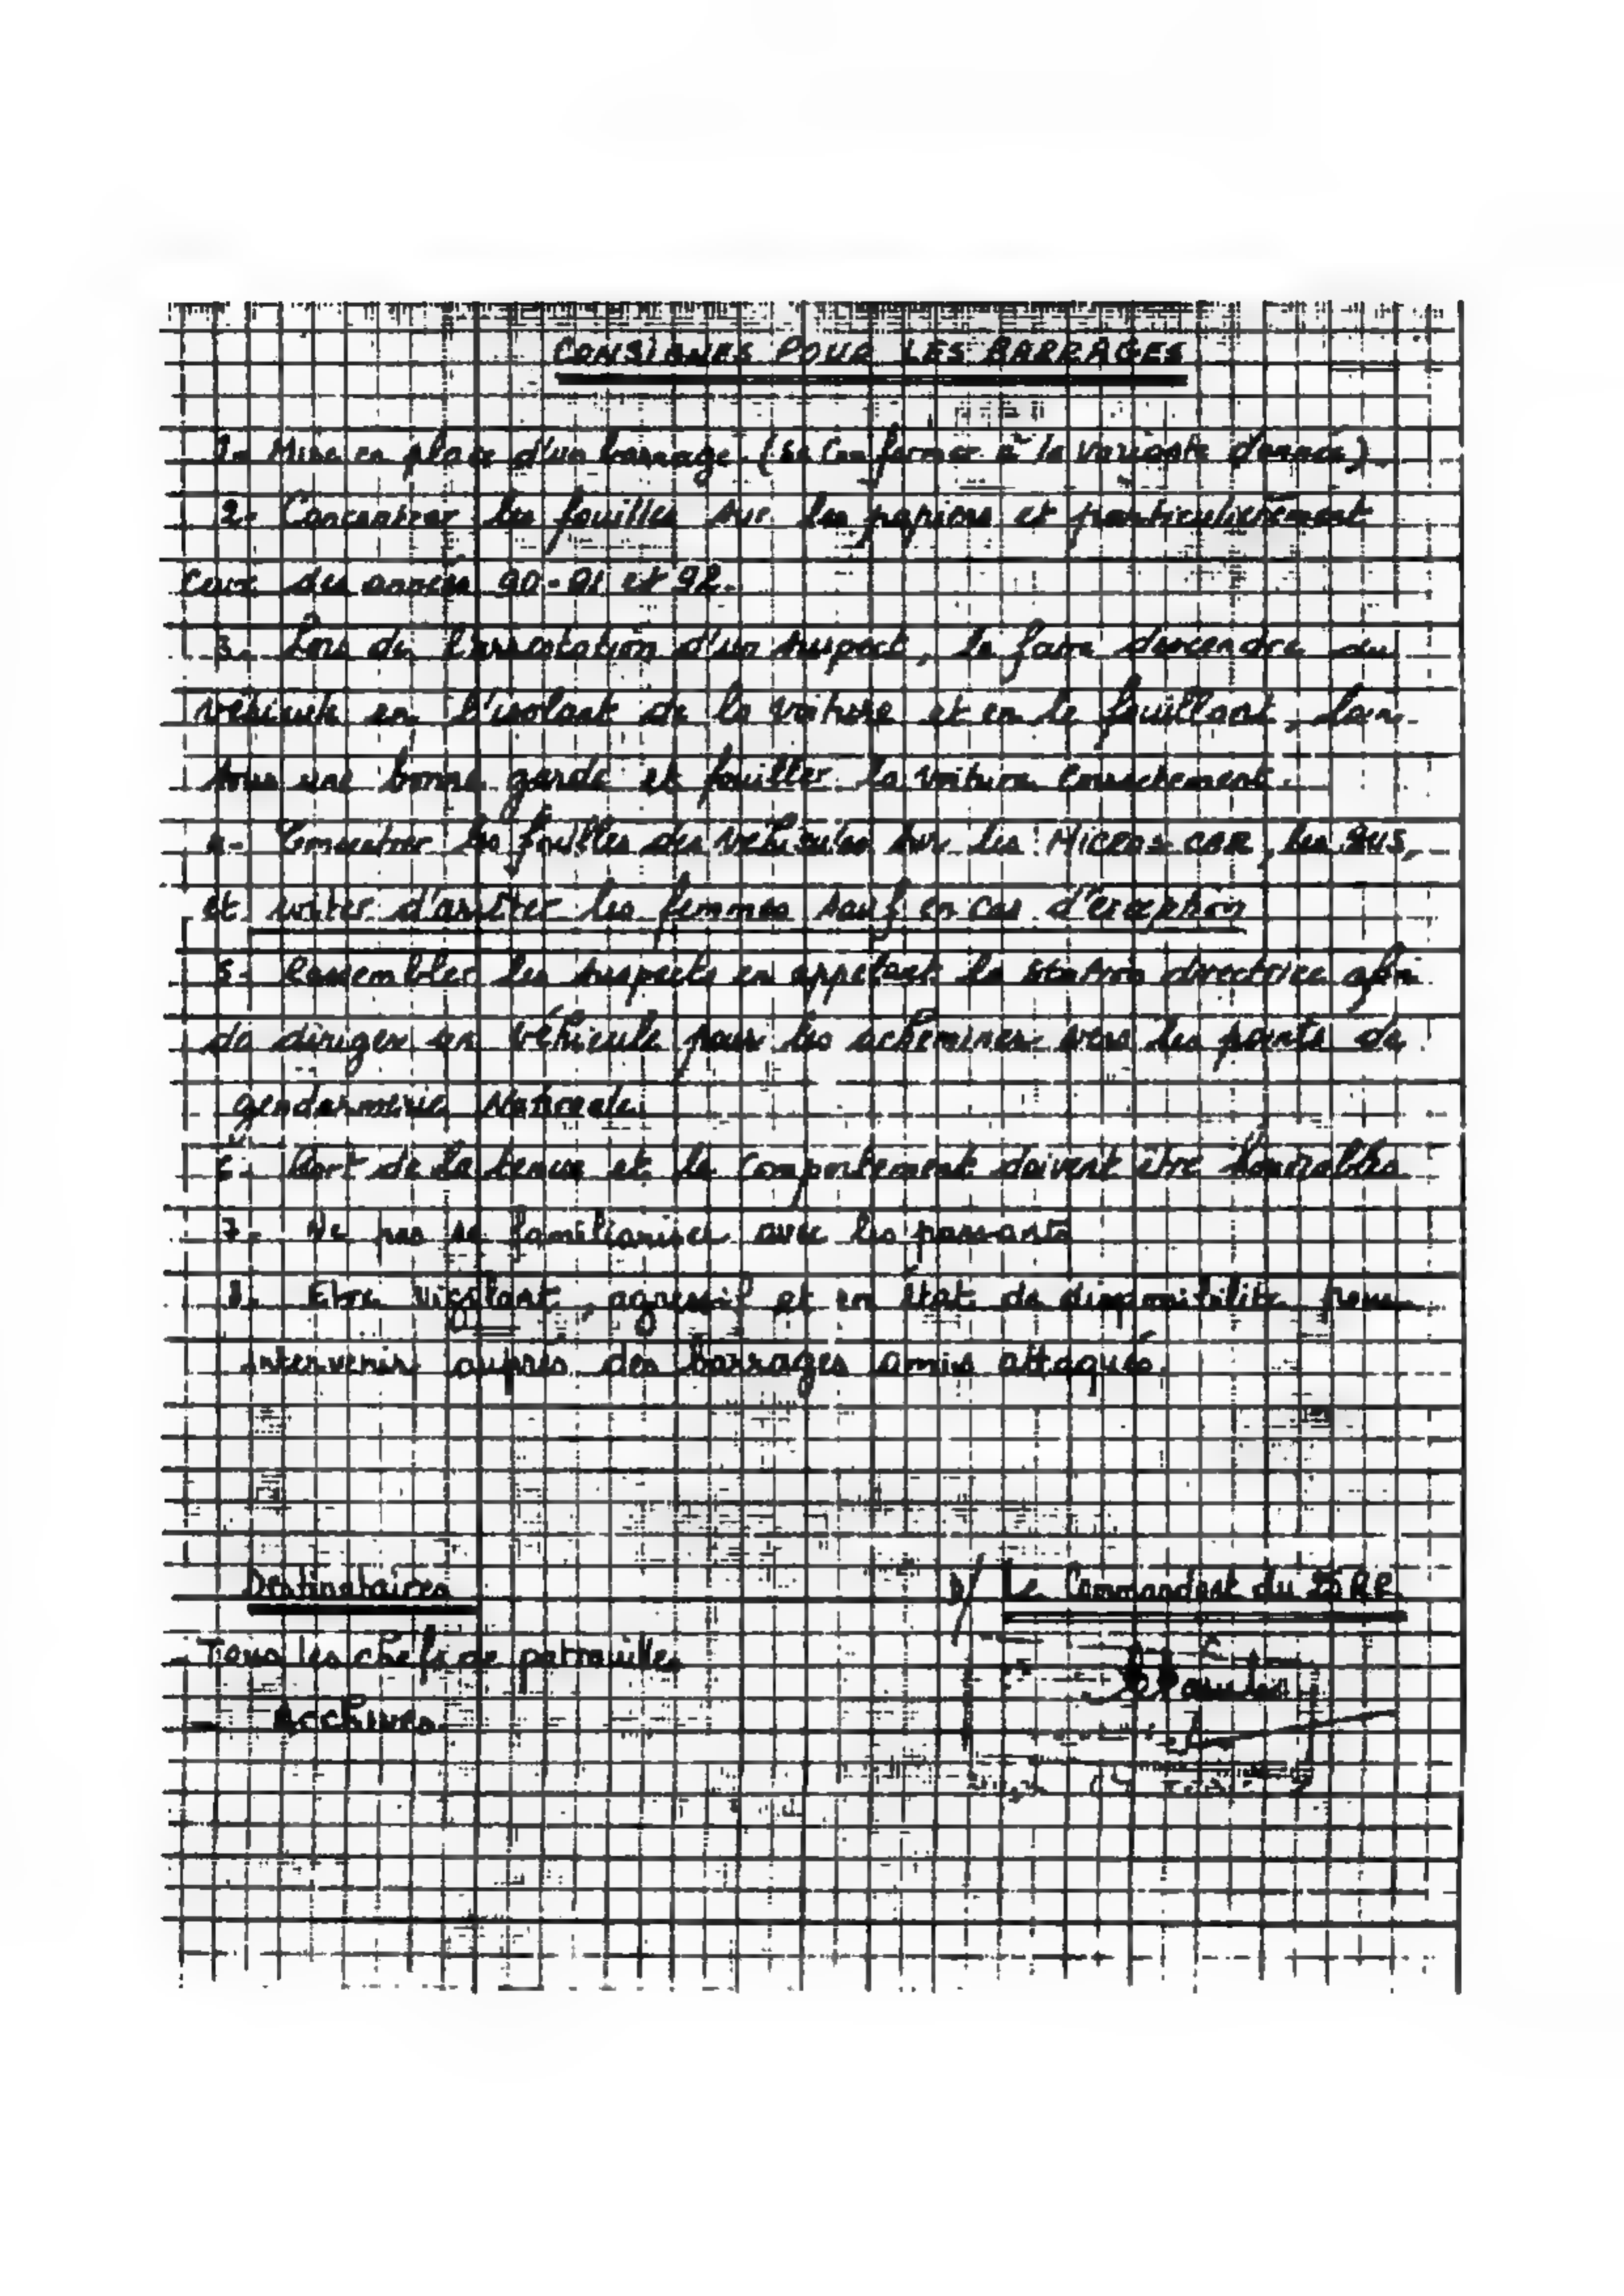 CONSIGNES POUR LES BARRAGES
1- Mise en place d'un barrage (se Conformer à la variante donnée)
2- Concentrer les fouilles sur les papiers et particulièrement
Ceux des années 90-91 et 92.
3- Lors de l'arrestation d'un suspect, le faire descendre du
véhicule en l'isolant de la voiture et en le fouillant,
sous une bonne garde et fouiller la voiture correctement.
4- Concentrer les fouilles des véhicules sur les Micros-car, les BUS,
et éviter d'arrêter les femmes sauf en cas d'exception
5- Rassembler les suspects en appelant la station directrice afin
de diriger un véhicule pour les acheminer vers les points de
gendarmerie Nationale.
6- Port de la tenue et le comportement doivent être honorables
7- Ne pas se familiariser avec les passants
8- Etre vigilant, agressif et en état de disponibilité pour
intervenir auprès des barrages amis attaqués.
Destinataires
P/ Le Commandant du
- Tous les chefs de patrouilles
- Archives.